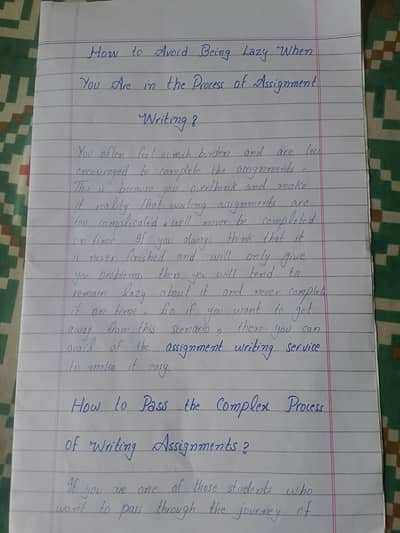 How to Avoid Being Lazy When
You Are in the Process of Assignment
Writing?
You often feel so much burden and are less
encouraged to complete the assignments.
This is because you overthink and make
it reality that writing assignments are
too complicated & will never be completed
on time. If you always think that it
is never finished and will only give
you problems, then you will tend to
remain lazy about it and never complete
it on time. So if you want to get
away from this scenario, then you can
avail of the assignment writing service
to make it easy.
How to Pass the Complex Process
of Writing Assignments?
If you are one of those students who
want to pass through the journey of